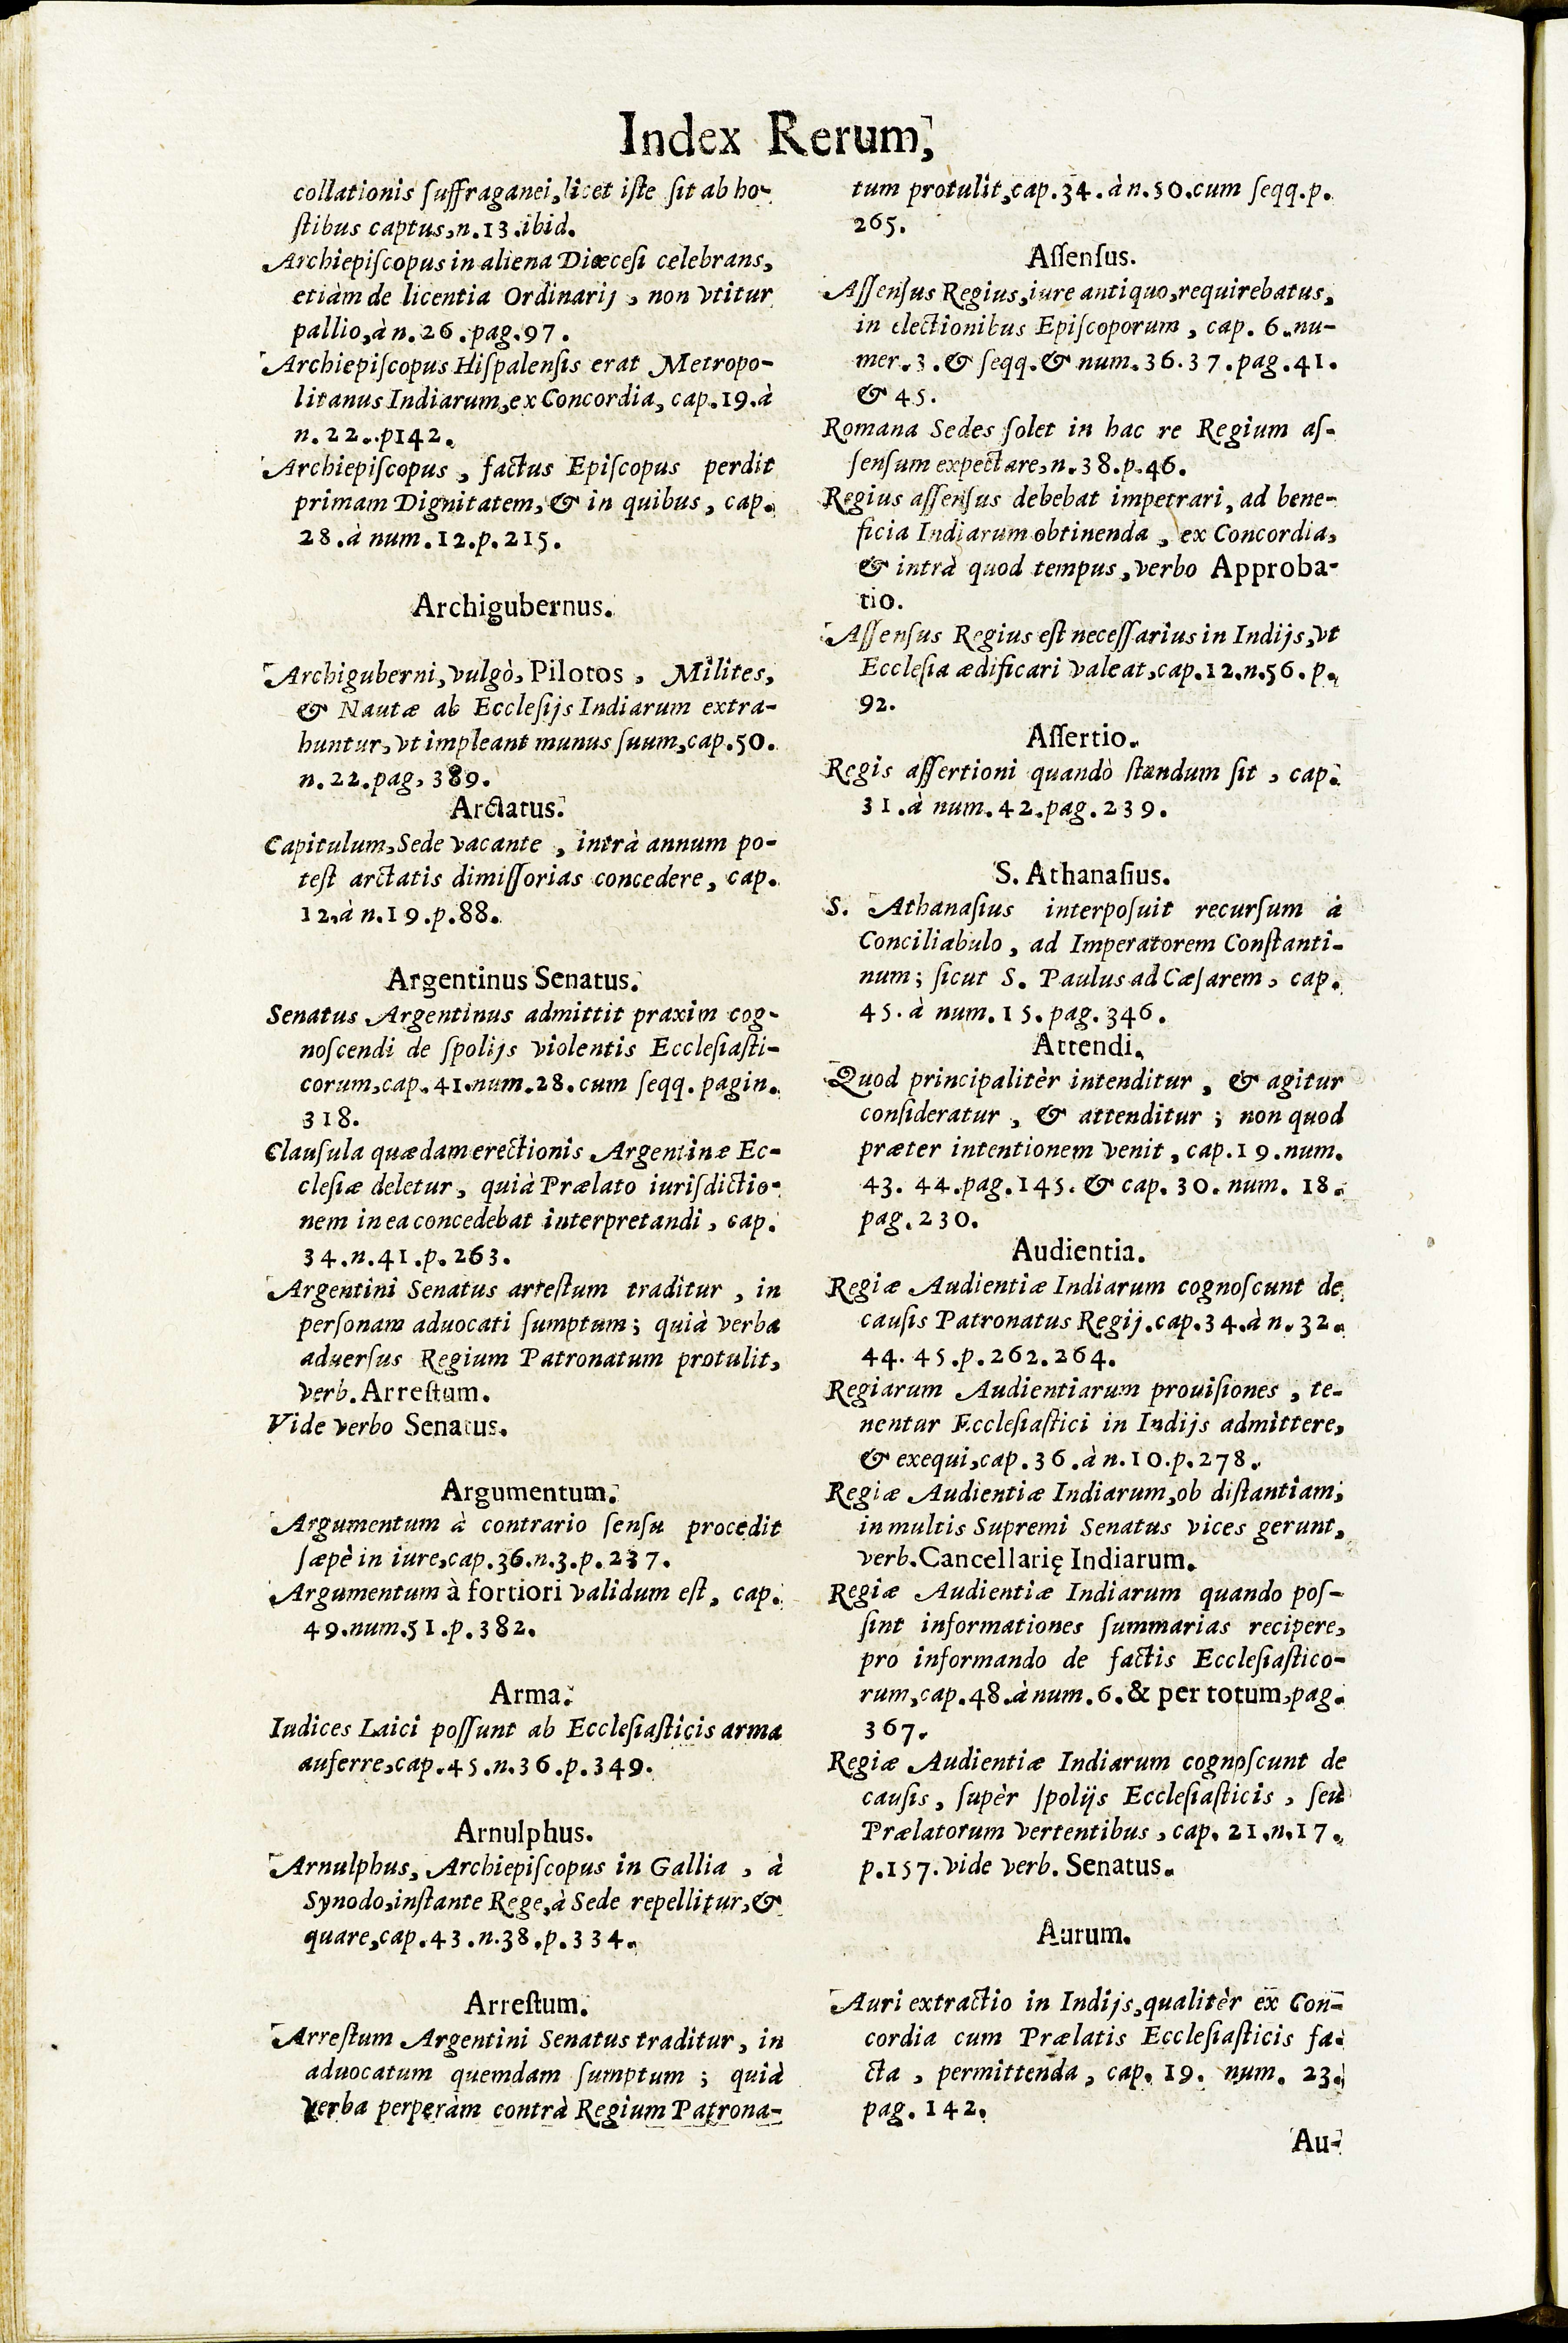 Index Rerum,
collationis ſuffraganei, licet iſte ſit ab ho-
ſtibus captus, n. 13. ibid.
Archiepiſcopus in aliena Diœceſi celebrans,
etiàm de licentia Ordinarij, non vtitur
pallio, à n. 26. pag. 97.
Archiepiſcopus Hiſpalenſis erat Metropo-
litanus Indiarum, ex Concordia, cap. 19. à
n. 22. p142.
Archiepiſcopus, factus Epiſcopus perdit
primam Dignitatem, & in quibus, cap.
28. à num. 12. p. 215.
Archigubernus.
Archiguberni, vulgò, Pilotos, Milites,
& Nautæ ab Eccleſijs Indiarum extra-
huntur, vt impleant munus ſuum, cap. 50.
n. 22. pag, 389.
Arctatus.
Capitulum, Sede vacante, intrà annum po-
teſt arctatis dimiſſorias concedere, cap.
12. à n. 19. p. 88.
Argentinus Senatus.
Senatus Argentinus admittit praxim cog-
noſcendi de ſpolijs violentis Eccleſiaſti-
corum, cap. 41. num. 28. cum ſeqq. pagin.
318.
Clauſula quædam erectionis Argentinæ Ec-
cleſiæ deletur, quià Prælato iuriſdictio-
nem in ea concedebat interpretandi, cap.
34. n. 41. p. 263.
Argentini Senatus arreſtum traditur, in
perſonam aduocati ſumptum; quià verba
aduerſus Regium Patronatum protulit,
verb. Arreſtum.
Vide verbo Senatus.
Argumentum.
Argumentum à contrario ſenſu procedit
ſæpè in iure, cap. 36. n. 3. p. 237.
Argumentum à fortiori validum eſt, cap.
49. num. 51. p. 382.
Arma.
Iudices Laici poſſunt ab Eccleſiaſticis arma
auferre, cap. 45. n. 36. p. 349.
Arnulphus.
Arnulphus, Archiepiſcopus in Gallia, à
Synodo, inſtante Rege, à Sede repellitur, &
quare, cap. 43. n. 38. p. 334.
Arreſtum.
Arreſtum Argentini Senatus traditur, in
aduocatum quemdam ſumptum; quià
verba perperàm contrà Regium Patrona-
tum protulit, cap. 34. à n. 50. cum ſeqq. p.
265.
Aſſenſus.
Aſſenſus Regius, iure antiquo, requirebatus,
in electionibus Epiſcoporum, cap. 6. nu-
mer. 3. & ſeqq. & num. 36. 37. pag. 41.
& 45.
Romana Sedes ſolet in hac re Regium aſ-
ſenſum expectare, n. 38. p. 46.
Regius aſſenſus debebat impetrari, ad bene-
ficia Indiarum obtinenda, ex Concordia,
& intrà quod tempus, verbo Approba-
tio.
Aſſenſus Regius eſt neceſſarius in Indijs, vt
Eccleſia ædificari valeat, cap. 12. n. 56. p.
92.
Aſſertio.
Regis aſſertioni quandò ſtandum ſit, cap.
31. à num. 42. pag. 239.
S. Athanaſius.
S. Athanaſius interpoſuit recurſum à
Conciliabulo, ad Imperatorem Conſtanti-
num; ſicut S. Paulus ad Cæſarem, cap.
45. à num. 15. pag. 346.
Attendi.
Quod principalitèr intenditur, & agitur
conſideratur, & attenditur; non quod
præter intentionem venit, cap. 19. num.
43. 44. pag. 145. & cap. 30. num. 18.
pag. 230.
Audientia.
Regiæ Audientiæ Indiarum cognoſcunt de
cauſis Patronatus Regij. cap. 34. à n. 32.
44. 45. p. 262. 264.
Regiarum Audientiarum prouiſiones, te-
nentur Eccleſiaſtici in Indijs admittere,
& exequi, cap. 36. à n. 10. p. 278.
Regiæ Audientiæ Indiarum, ob diſtantiam,
in multis Supremi Senatus vices gerunt,
verb. Cancellarię Indiarum.
Regiæ Audientiæ Indiarum quando poſ-
ſint informationes ſummarias recipere,
pro informando de factis Eccleſiaſtico-
rum, cap. 48. à num. 6. & per totum, pag.
367.
Regiæ Audientiæ Indiarum cognoſcunt de
cauſis, ſupèr ſpolijs Eccleſiaſticis, ſeù
Prælatorum vertentibus, cap. 21. n. 17.
p. 157. vide verb. Senatus.
Aurum.
Auri extractio in Indijs, qualitèr ex Con-
cordia cum Prælatis Eccleſiaſticis fa-
cta, permittenda, cap. 19. num. 23.
pag. 142.
Au-